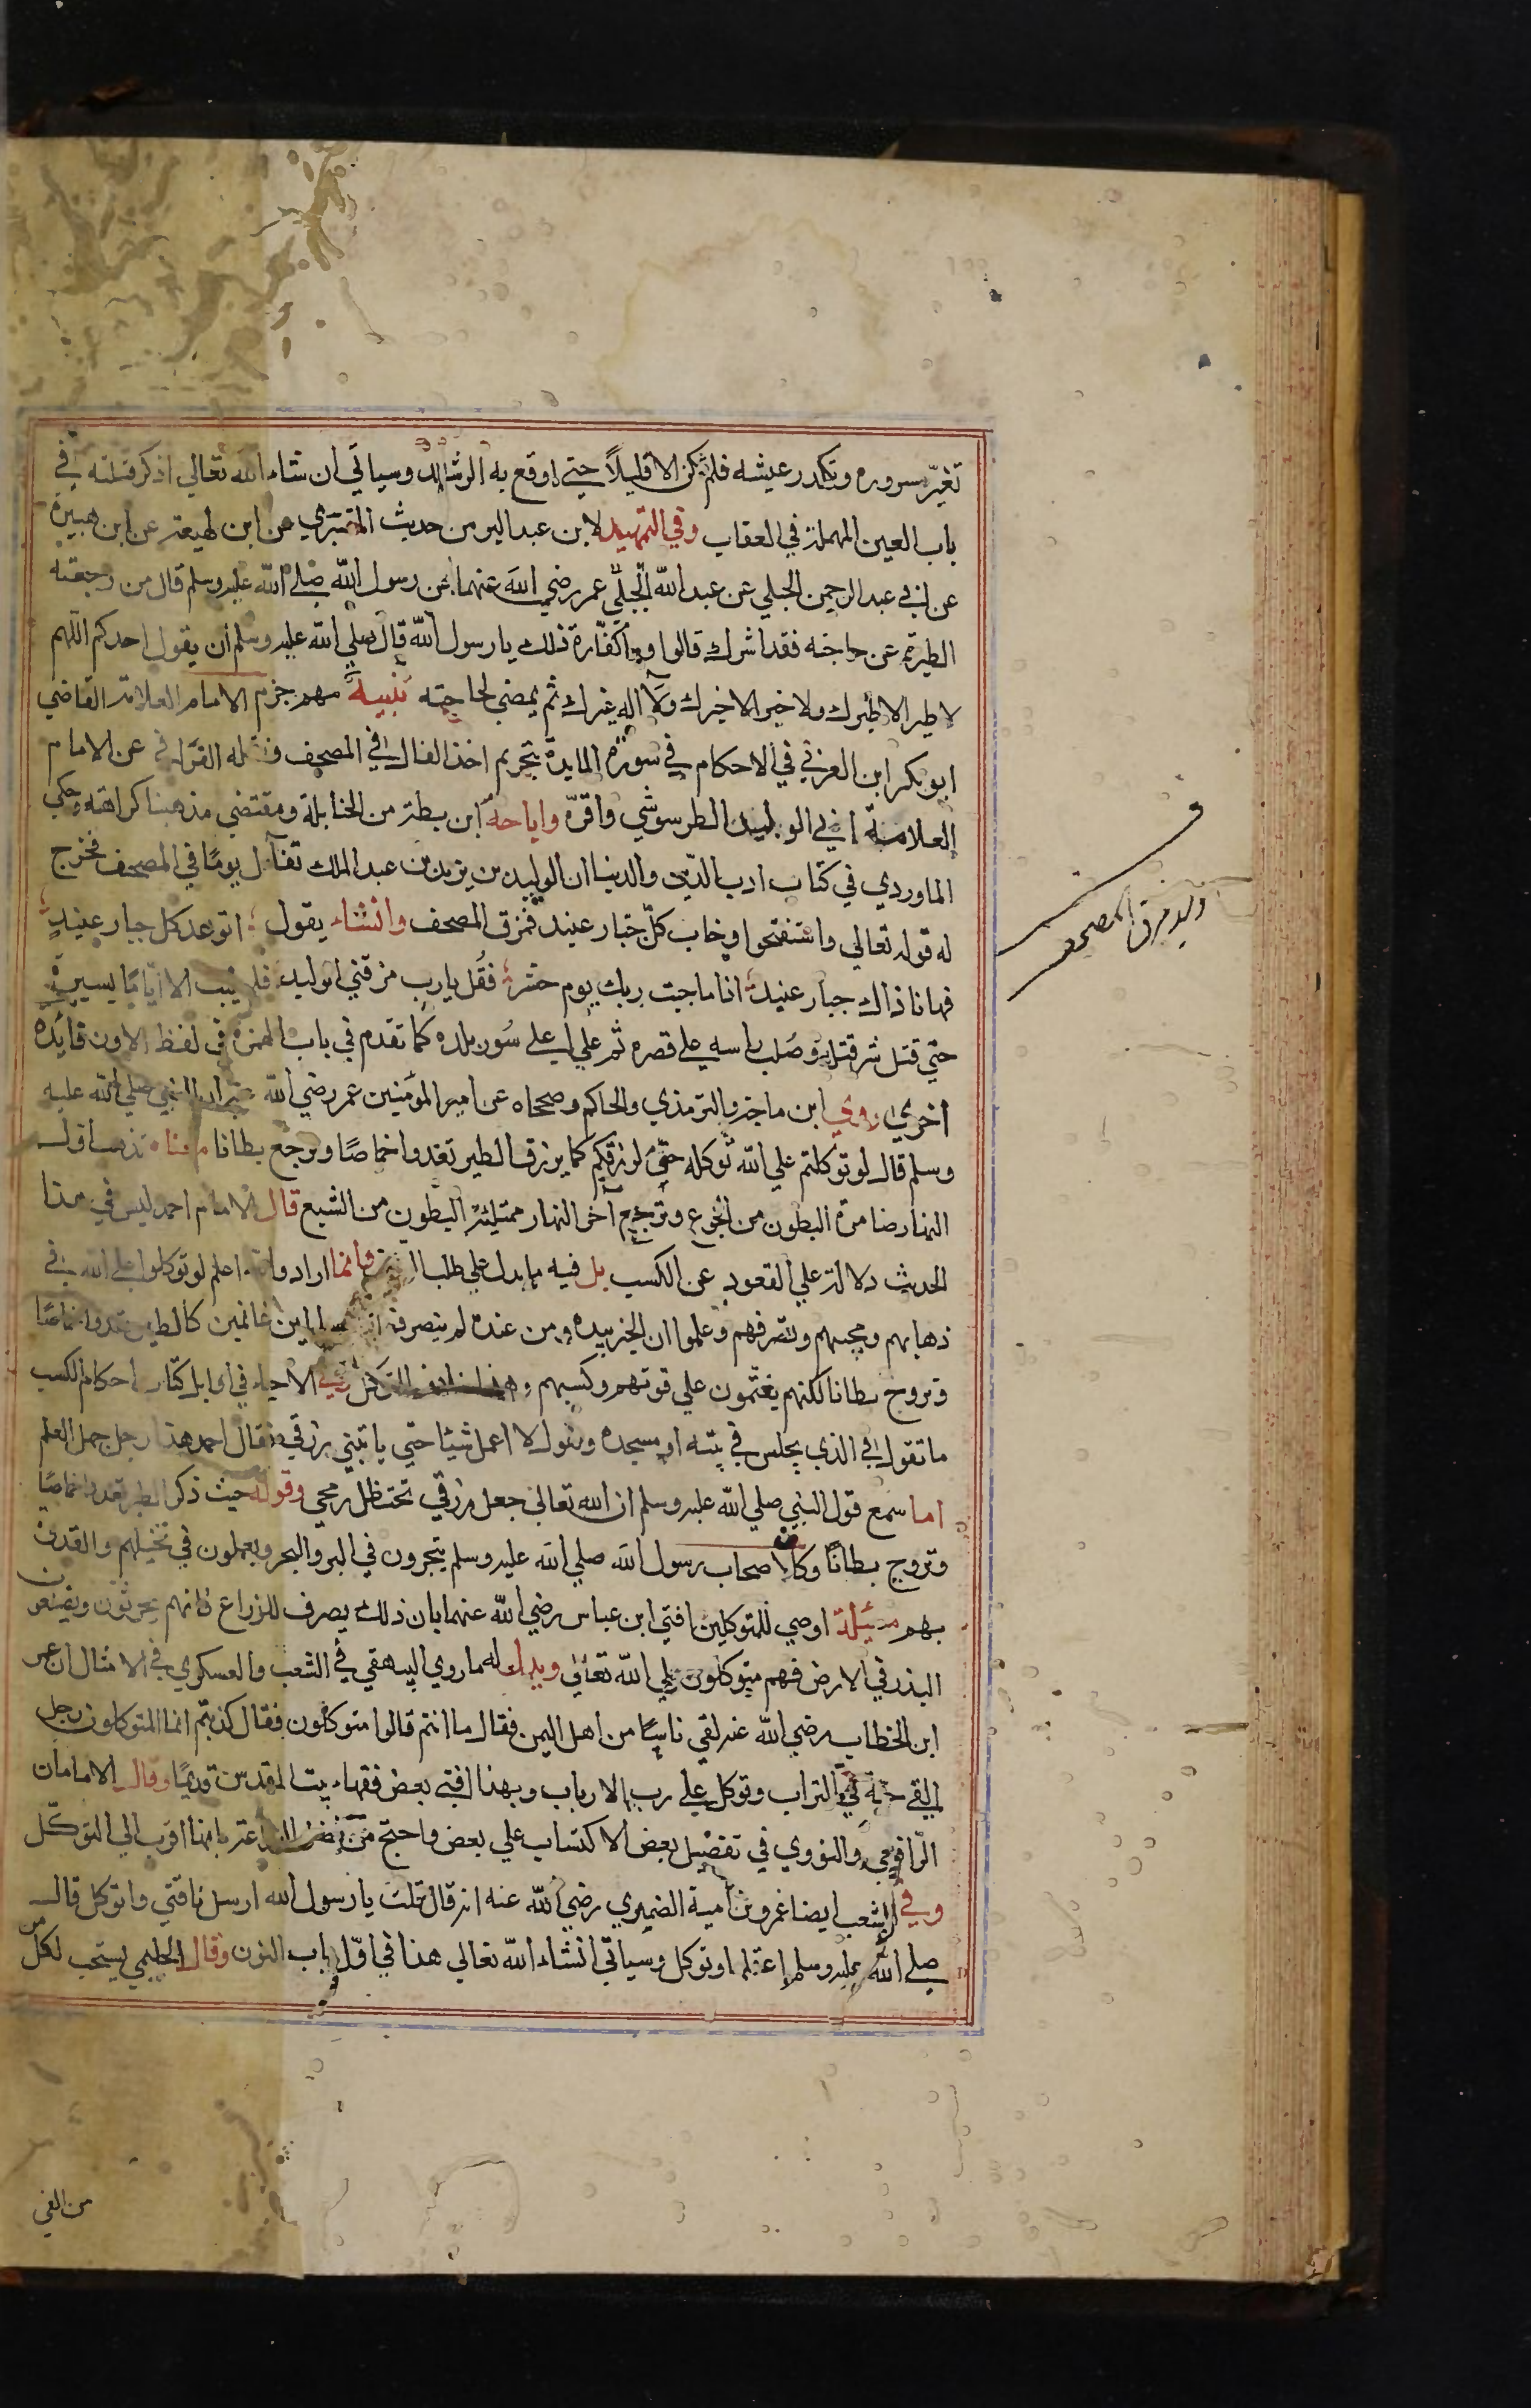 تغيّر سروره وتكدر عيشه فلم يكن الا قليلاً حتي اوقع به الرشيد وسياتي ان شاء الله تعالي اذكر قتلته في
باب العين المهملة في العقاب وفي التمهيد لابن عبد البر من حديث المقبري عن ابن لهيعة عن ابن هبيرة
عن ابي عبد الرحمن الجبلي عن عبد الله عمر رضي الله عنهما عن رسول الله صلي الله عليه وسلم قال من رجعته
الطيرة عن حاجته فقد اشرك قالوا وما كفّارة ذلك يا رسول الله قال صلي الله عليه وسلم ان يقول احدكم اللهم
لا طير الا طيرك ولا خير الا خيرك ولا اله غيرك ثم يمضي لحاجته تنبيه مهم جزم الامام العلامة القاضي
ابو بكر ابن العربي في الاحكام في سورة المايدة بتحريم اخذ الفال في المصحف ونقله القرافي عن الامام
العلامة ابي الوليد الطرسوشي واقرّه واباحه ابن بطة من الحنابلة ومقتضي مذهبنا كراهته وحكي
الماوردي في كتاب ادب الدين والدنيا ان الوليد بن يزيد بن عبد الملك تفآئل يومًا في المصحف فخرج
له قوله تعالي واستفتحوا وخاب كلّ جبار عنيد فمزق المصحف وانشاء يقول اتوعد كل جبار عنيدٍ
فها انا ذاك جبار عنيد اذا ما جيت ربك يوم حشر فقُل يا رب مزقني الوليد فلم يلبث الا ايّامًا يسيرةً
حتي قتل شر قتلة وصُلب راسه علي قصره ثم علي اعلي سُور بلده كما تقدم في باب الهمزة في لفظ الاوز فايده
اخري روي ابن ماجة والترمذي والحاكم وصححاه عن امير المؤمنين عمر رضي الله عنه ان النبي صلي الله عليه
وسلم قال لو توكلتم علي الله توكله حقّ لرزقكم كما يرزق الطير تغدوا خماصًا وترجع بطانا معناه تذهب اول
النهار ضامرة البطون من الجوع وترجع آخر النهار ممتلئة البطون من الشبع قال الامام احمد ليس في هذا
الحديث دلالة علي القعود عن الكسب بل فيه ما يدل علي طلب الرزق وانما اراد والله اعلم لو توكلوا علي الله في
ذهابهم ومجيهم وتصرفهم وعلموا ان الخير بيده ومن عنده لم ينصرفوا الا سالمين غانمين كالطير تغدوا خماصًا
وتروح بطانا لكنهم يغتمون علي قوتهم وكسبهم وهذا خلاف التوكل وفي الاحياء في اوايل كتاب احكام الكسب
ما تقول في الذي يجلس في بيته او مسجده ويقول لا اعمل شيئا حتي ياتيني رزقي فقال احمد هذا رجل جهل العلم
اما سمع قول النبي صلي الله عليه وسلم ان الله تعالي جعل رزقي تحت ظل رمحي وقوله حيث ذكر الطير تغدوا خماصًا
وتروح بطانًا وكان اصحاب رسول الله صلي الله عليه وسلم يتجرون في البر والبحر ويعملون في نخيلهم والقدوة
بهم مسئلة اوصي للمتوكلين افتي ابن عباس رضي الله عنهما بان ذلك يصرف للزراع فانهم يحرثون ويضعون
البذر في الارض فهم متوكلون علي الله تعالي ويدل له ما روي البيهقي في الشعب والعسكري في الامثال ان عمر
ابن الخطاب رضي الله عنه لقي ناسًا من اهل اليمن فقال ما انتم قالوا متوكلون فقال كذبتم انما المتوكلون رجل
القي حبه في التراب وتوكل علي رب الارباب وبهذا افتي بعض فقهاء بيت المقدس قديمًا وقال الامامان
الرّافعي والنووي في تفضيل بعض الاكتساب علي بعض واحتج من فضل الزراعة بانها اقرب الي التوكّل
وفي الشعب ايضا عمرو بن امية الضميري رضي الله عنه انه قال قلت يا رسول الله ارسل ناقتي واتوكل قال
صلي الله عليه وسلم اعقلها وتوكل وسياتي انشاء الله تعالي هذا في اوّل باب النون وقال الحليمي يستحب لكل من
وليد مزق المصحف
من القي